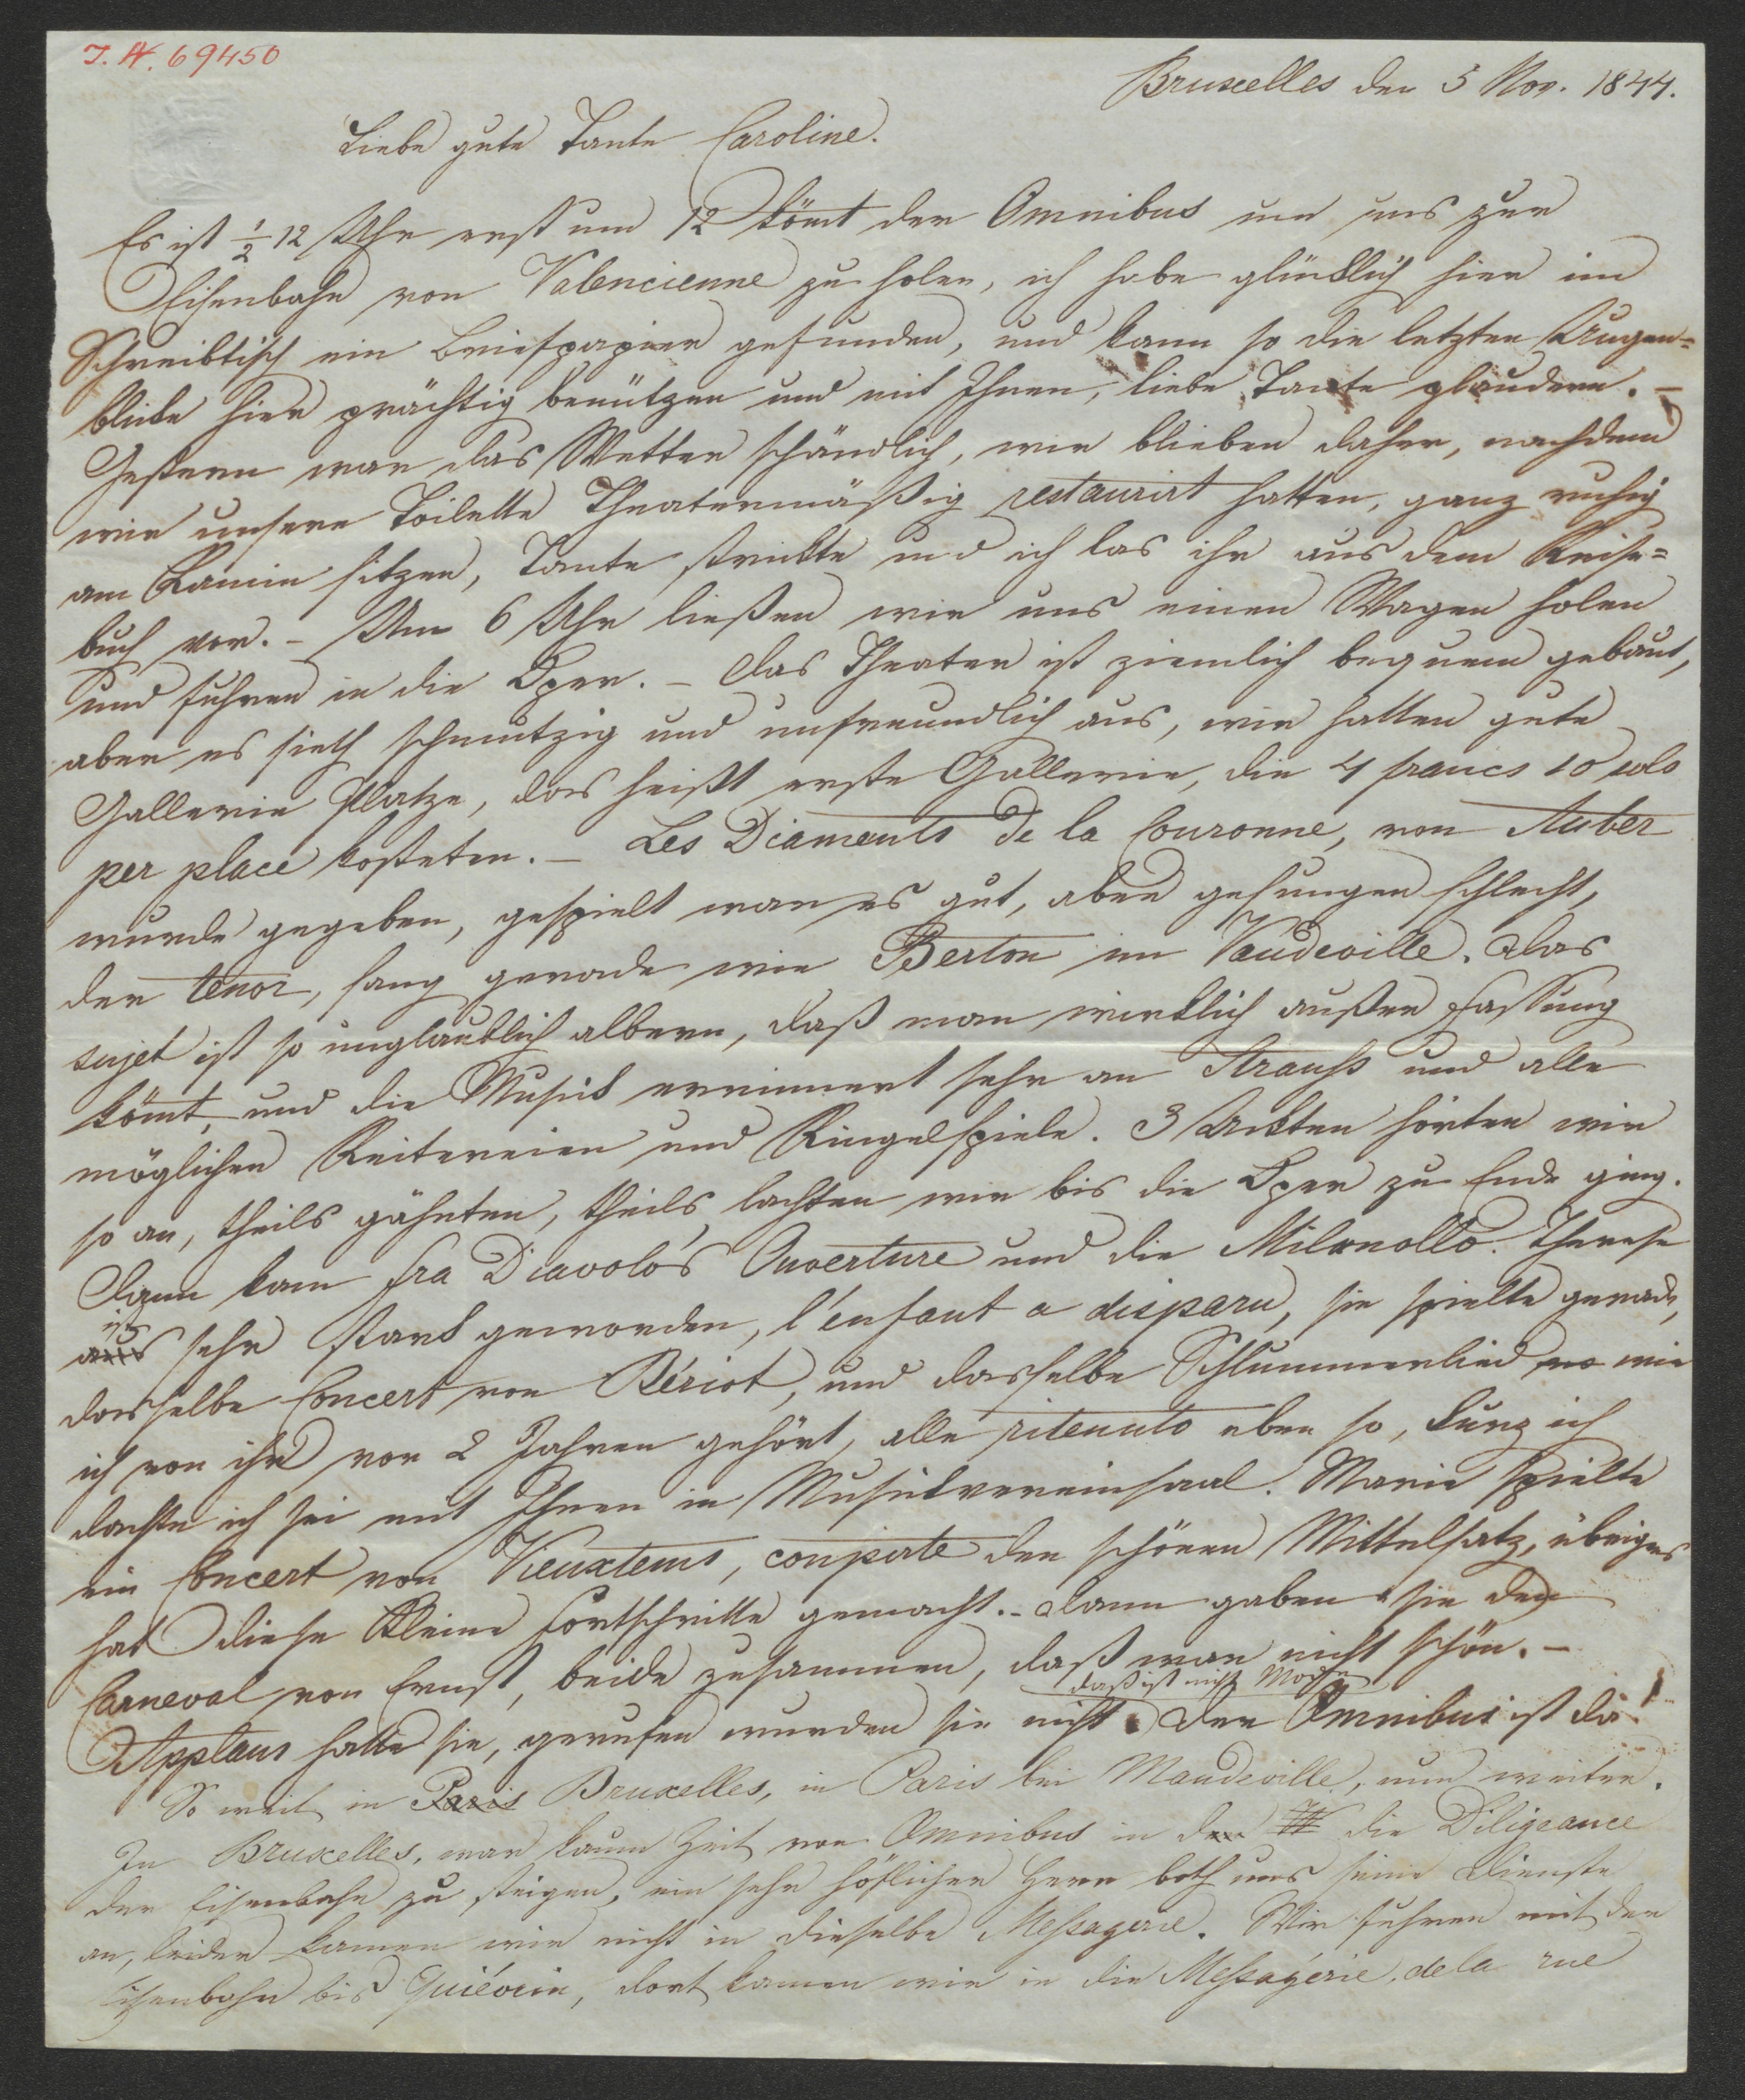 I. N. 69450
Bruxelles den 5 Nov. 1844.
Liebe gute Tante Caroline.
Es ist ½ 12 Uhr erst um 12 kömt der Omnibus um uns zur
Eisenbahn von Valencienne zu holen, ich habe glücklich hier im
Schreibtisch ein Briefpapier gefunden, und kann so die letzten Augen=
blicke hier prächtig benützen und mit Ihnen, liebe Tante plaudern. –
Gestern war das Wetter schändlich, wir blieben daher, nachdem
wir unsere Toilette Theatermäßig restaurirt hatten, ganz ruhig
am Kamin sitzen, Tante strickte und ich las ihr aus dem Reise=
buch vor. – Um 6 Uhr ließen wir uns einen Wagen holen
und fuhren in die Oper. – Das Theater ist ziemlich bequem gebaut,
aber es sieth schmutzig und unfreundlich aus, wir hatten gute
Gallerie Platze, das heißt erste Gallerie, die 4 francs 10 sols
per place kosteten. – Les Diamants de la Couronne, von Auber
wurde gegeben, gespielt war es gut, aber gesungen schlecht,
der tenor, sang gerade wie Berton im Vaudeville. Das
sujet ist so unglaublich albern, daß man wirklich außer Fassung
kömt, und die Musik errinnert sehr an Strauss und alle
möglichen Reitereien und Ringelspiele. 3 Ackten hörten wir
so an, theils gähnten, theils lachten wir bis die Oper zu Ende ging.
Dann kam fra Diavolo's Ouverture und die Milanollo. Therese
ist
aus sehr stark geworden, l'enfant a disparu, sie spielte gerade,
dasselbe Concert von Bériot, und dasselbe Schlummerlied wo wie
ich von ihr vor 2 Jahren gehört, alle ritenuto eben so, kurz ich
dachte ich sei mit Ihnen im Musikvereinsaal. Marie spielte
ein Concert von Vieuxtems, coupirte den schönen Mittelsatz, übrigens
hat diese Kleine Fortschritte gemacht. – Dann gaben sie den
Carneval von Ernst, beide zusammen, daß war nicht schön. –
daß ist nicht
Applaus hatte sie, gerufen wurden sie nicht. Der Omnibus ist da!
So weit in Paris Bruxelles, in Paris bei Mandeville, nun weiter.
In Bruxelles, war kaum Zeit vom Omnibus in den die Diligeance
der Eisenbahn zu steigen, ein sehr höflicher Herr both uns seine Dienste
an, leider kamen wir nicht in dieselbe Messagerie. Wir fuhren mit der
Eisenbahn bis Quiévrin, dort kamen wir in die Messagérie, de la rue